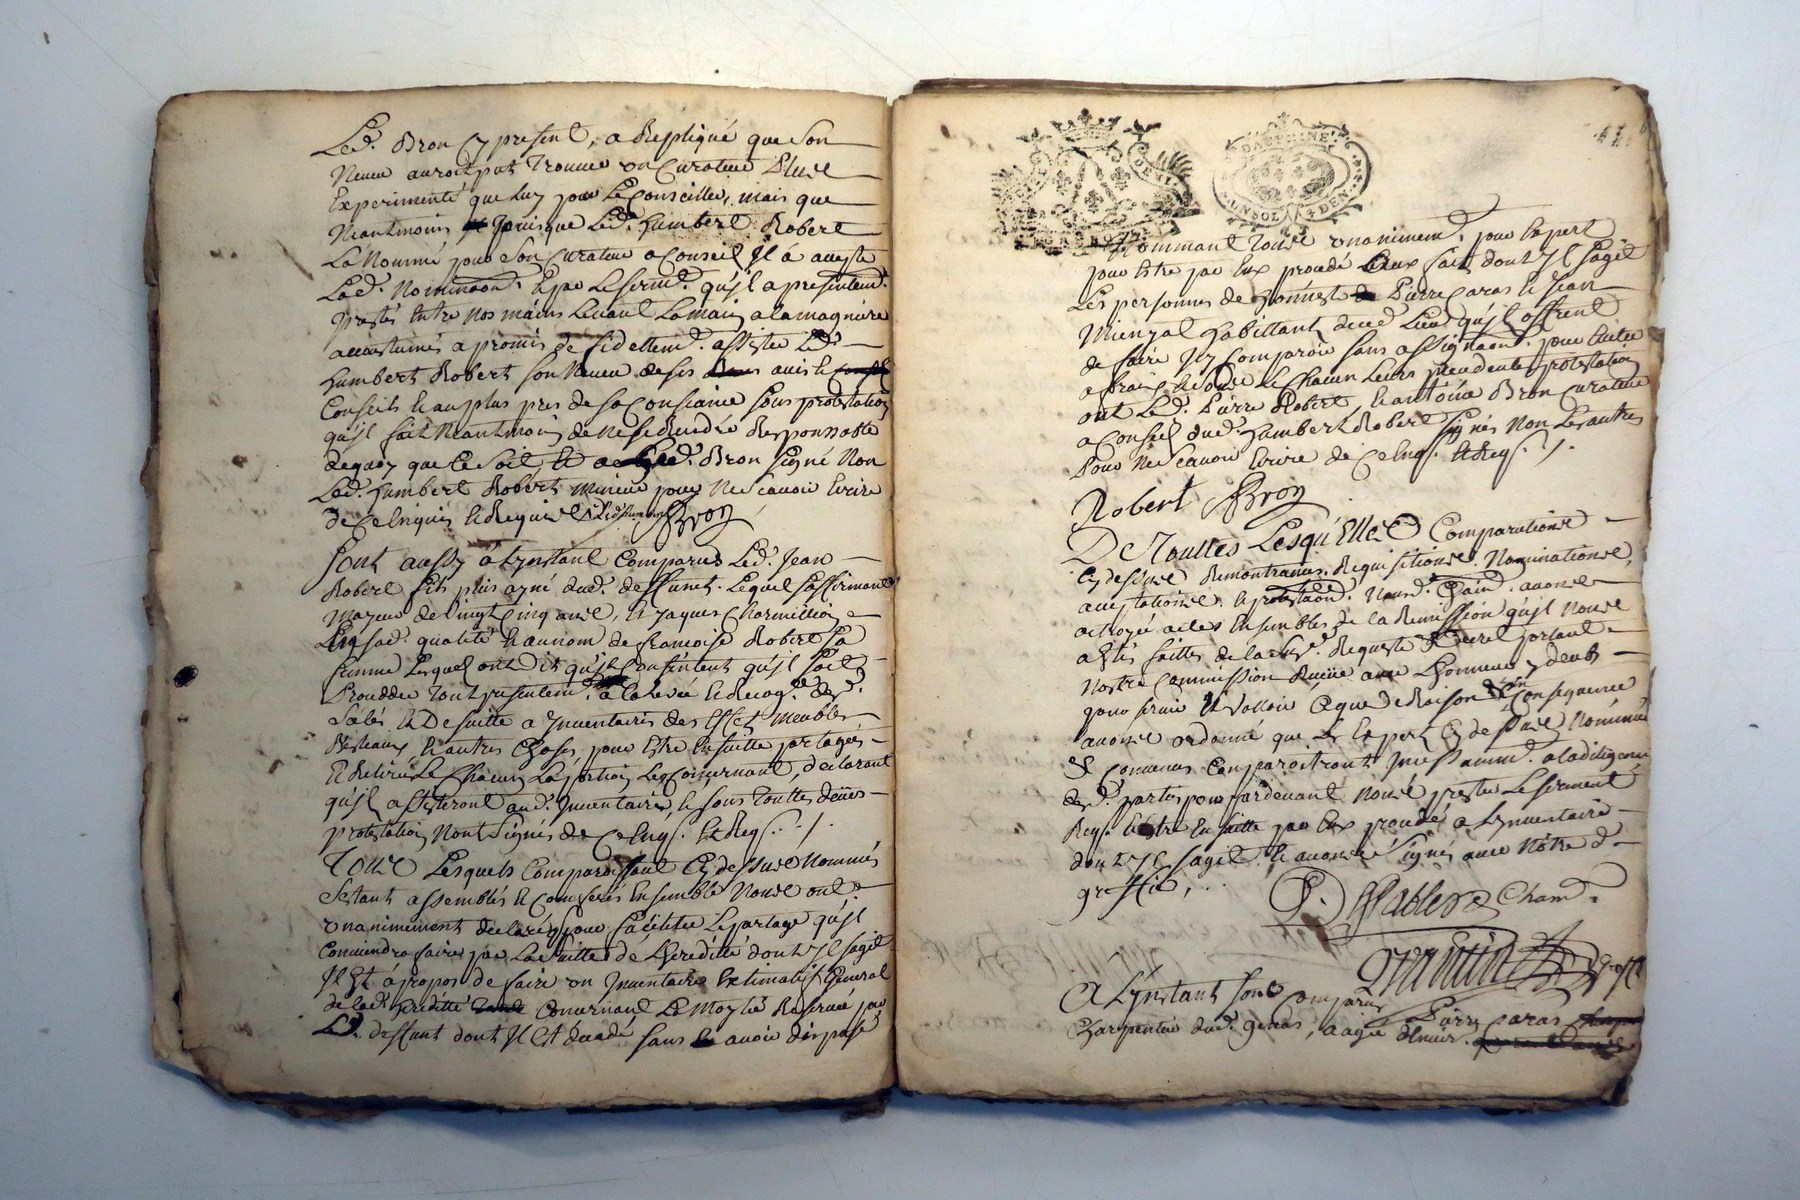 Led. Bron Cy present, a Repliqué que Son
Neveu auroit put Trouver un Curateur Plus
Experimenté que luy pour Le Conseiller, mais que
Neantmoins puisque Led. humbert Robert
La Nommé pour Son Curateur a Conseil Il á accepté
Lad. Nominaon. Et par Le Serm. qu'il a presentem.
prestés Entre Nos mains Levant La main a la magniere
accoutumés a promis de fidellem. assister Led.
humbert Robert son Neveu de ses avis et
Conseils Et au plus pres de sa Consiance sous protestation
qu'il fait Neantmoins de Ne se Rendre Responsable
de quoy que Ce Soit, Et a Led. Bron signé Non
Led. humbert Robert mineur pour Ne scavoir Ecrire
de Ce Enquis Et Requis Bron
Sont aussy á Lynstant Comparus Led. Jean
Robert fils plus ayné dud. deffunt. Lequel s'affirmant
Mayeur de Vingt Cinq ans, Et Jaques Charmillion
En sad. qualité Et au nom de francoise Robert sa
femme Lesquel ont Dit qu'ils Consentent qu'il soit
Proceddé Tout presentem. a la levée Et Recog. des d.
Sélés Et De suitte a Inventaire des Effet meubles
Bestiaux Et autres Choses pour Estre En suitte partagés
Et Retirer Le Chacun La portion Les Concernant, declarant
qu'il assisteront aud. Inventaire Et sous Touttes deües
protestation N'ont Signés de Ce Enq. Et Req. ./.
Tous Lesquels Comparoissant Cy dessus Nommés
Sétant assemblés Et Conferés Ensemble Nous ont
Unanimement declarés pour facilliter Le partage qu'il
Conviendra faire par La suitte de Lhereditté dont Il sagit
Il Est á propos de faire un Inventaire Estimatif General
de lad. hereditté Concernant La Moytié Reservée par
Led. deffunt dont Il Est decedé sans avoir disposé
DAUPHINE
UN SOL 4 DEN
Nommant Tous Unanimem. pour Expert
pour Estre par Eux proceddé aux fait dont Il sagit
Les personnes de honnest Pierre Caras Et Jean
Mienzal habittant dud. Lieu qu'il offrent
de faire Icy Comparoir sans assignaon. pour Eviter
a frais Et sous Le Chacun Leurs precedente protestation
ont Led. Pierre Robert, Et antoine Bron Curateur
a Conseil dud. humbert Robert signés Non Les autres
Pour Ne Scavoir Ecrire de Ce Enq. Et Req. ./.
Robert Bron
De Touttes Lesquelles Comparutions
Cy dessus Remontrances, Requisitions, Nominations,
acceptations, Et protestaon. Nousd. Chatn. avons
actroyé actes Ensembles de la Remission qu'il Nous
a Estés faittes de la Requeste Et decret portant
Nostre Commission Reçüe avec Lhonneur y deub
pour servir Et Valloir Ce que de Raison Et En Consequence
avons ordonné que Les Expert Cy dessus Nommés
Et Convenus Comparoitront Incessamm. a la diligence
des d. parties pour pardevant Nous prester Le Serment
Req. Et Estre En suitte par Eux proceddé a Lynventaire
dont Il sagit. Et avons signés avec Nôtre d.
greffier, ...
Cham.
A Lynstant Sont Comparus Pierre Caras
Charpentier dud. genas, aagé d'Environ